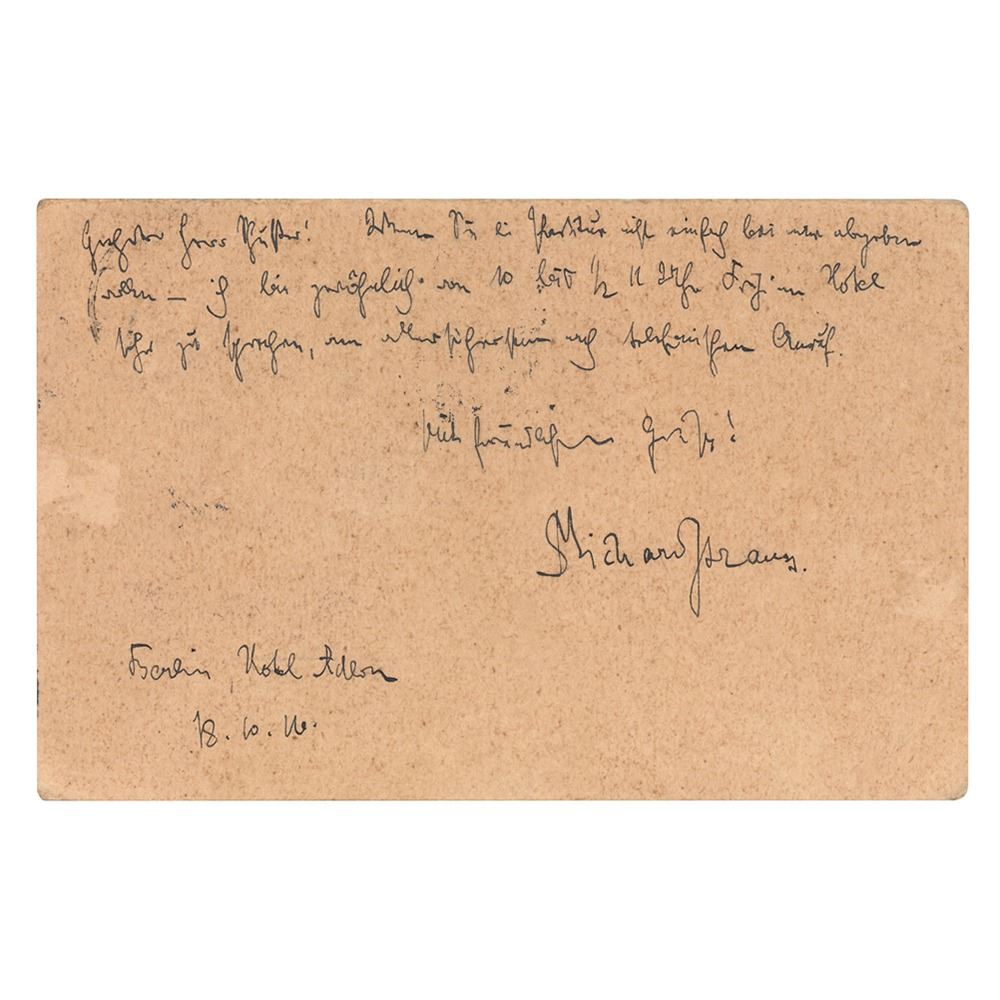 Geehrter Herr
Wenn Sie die Partitur nicht einfach bei mir abgeben
wollen – ich bin gewöhnlich von 10 bis ½ 11 Uhr Früh im Hotel
hier zu sprechen, am allersichersten nach telefonischem Anruf.
Mit freundlichem Gruß!
Richard Strauss.
Berlin, Hotel Adlon
18. 10. 16.